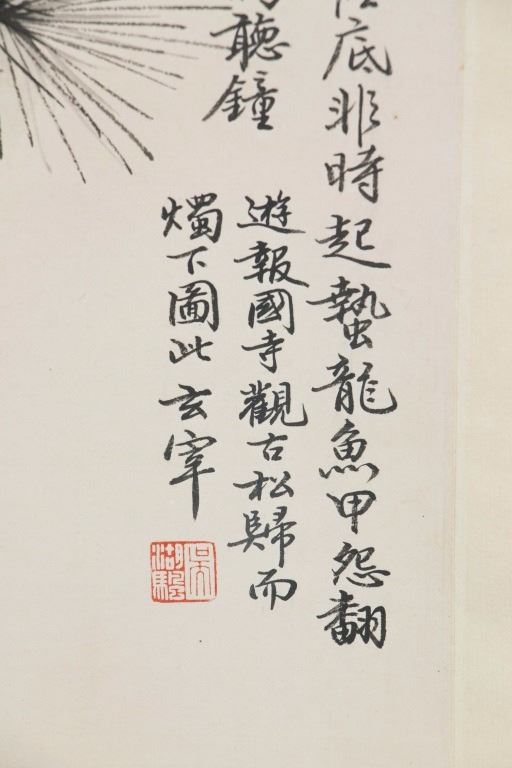 底非時起蟄龍魚甲怨翻
聽鐘
遊報國寺觀古松歸而
燭下圖此玄宰
吳湖颿